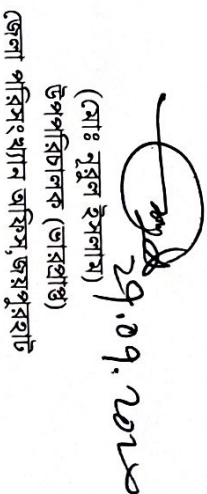 ২৭.০৭.২০২০
(মোঃ নুরুল ইসলাম)
উপপরিচালক (ভারপ্রাপ্ত)
জেলা পরিসংখ্যান অফিস, জয়পুরহাট